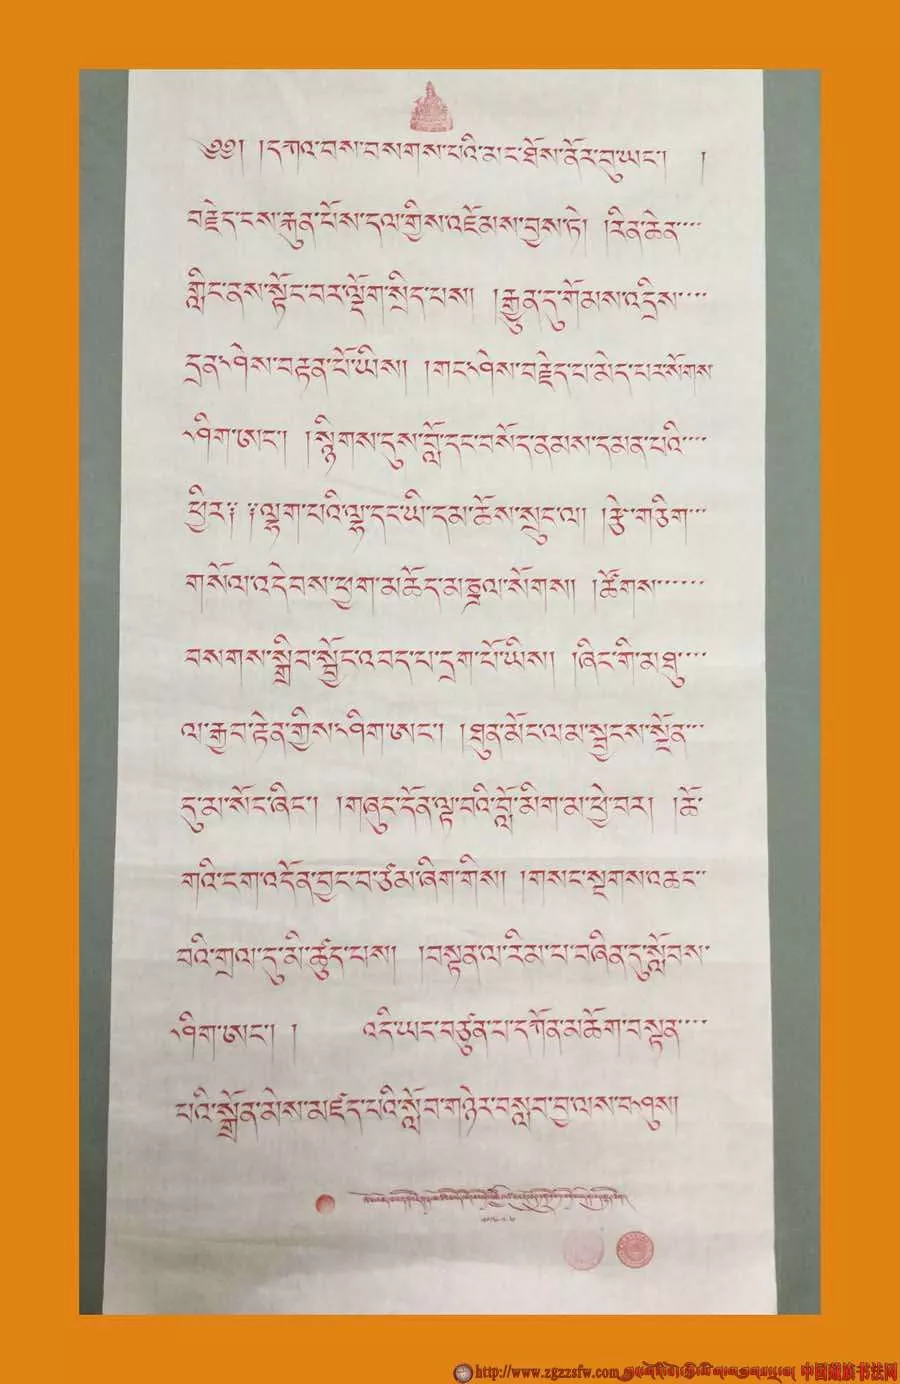 ༄༅། །དཀའ་བས་བསགས་པའི་མང་ཐོས་ནོར་བུ་ཡང་། །
བརྗེད་ངས་རྐུན་པོས་དལ་གྱིས་འཇོམས་བྱས་ཏེ། །རིན་ཆེན་
གླིང་ནས་སྟོང་བར་ལྡོག་སྲིད་པས། །རྒྱུན་དུ་གོམས་འདྲིས་
དྲན་ཤེས་བརྟན་པོ་ཡིས། །གང་ཤེས་བརྗེད་པ་མེད་པར་སོགས
ཤིག་ཨང་། །སྙིགས་དུས་བློ་དང་བསོད་ནམས་དམན་པའི་
ཕྱིར། །ལྷག་པའི་ལྷ་དང་ཡི་དམ་ཆོས་སྲུང་ལ། །རྩེ་གཅིག་
གསོལ་འདེབས་ཕྱག་མཆོད་མཎྜལ་སོགས། །ཚོགས་
བསགས་སྒྲིབ་སྦྱོང་འབད་པ་དྲག་པོ་ཡིས། །ཞིང་གི་མཐུ་
ལ་རྒྱབ་རྟེན་གྱིས་ཤིག་ཨང་། །ཐུན་མོང་ལམ་སྦྱངས་སྔོན་
དུ་མ་སོང་ཞིང་། །གཞུང་དོན་ལྟ་བའི་བློ་མིག་མ་ཕྱེ་བར། །ཆོ་
གའི་ངག་འདོན་བྱང་བ་ཙམ་ཞིག་གིས། །གསང་སྔགས་འཆང་
བའི་གྲལ་དུ་མི་ཚུད་པས། །བསྟན་ལ་རིམ་པ་བཞིན་དུ་སློབས་
ཤིག་ཨང་། ། འདི་ཡང་བཙུན་པ་དཀོན་མཆོག་བསྟན་
པའི་སྒྲོན་མེས་མཛད་པའི་སློབ་གཉེར་བསླབ་བྱ་ལས་བཤུས།
http://www.zgzzsfw.com
中国藏族书法网